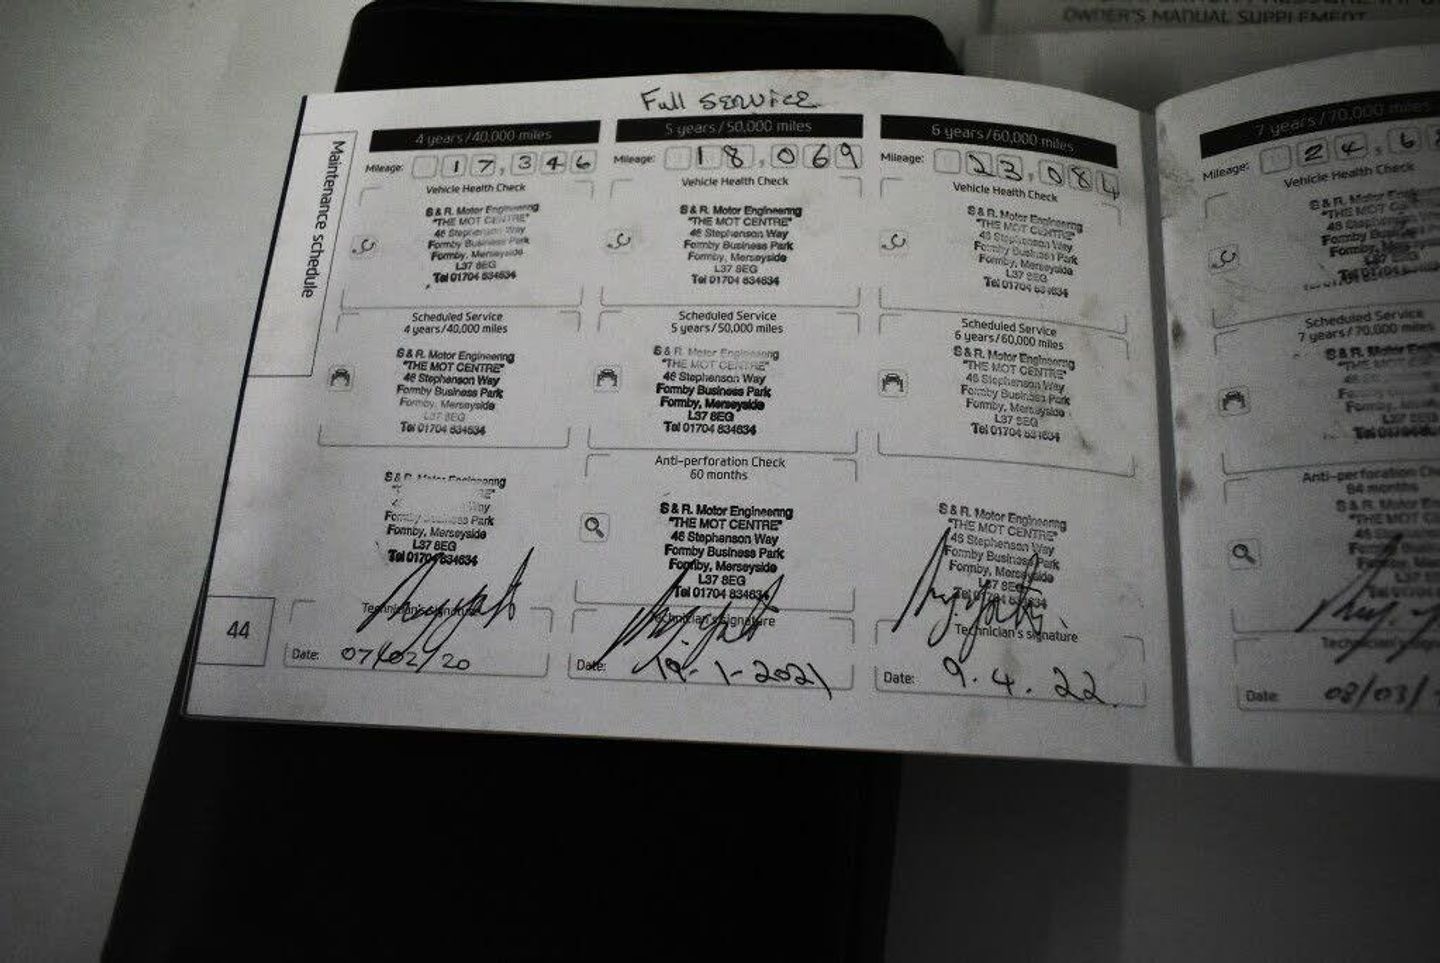 OWNER'S MANUAL SUPPLEMENT
Maintenance schedule
44
Full SERVICE
4 years/40,000 miles
Mileage: 17,346
Vehicle Health Check
S & R. Motor Engineering
"THE MOT CENTRE"
46 Stephenson Way
Formby Business Park
Formby, Merseyside
L37 8EG
Tel 01704 834634
Scheduled Service
4 years/40,000 miles
S & R. Motor Engineering
"THE MOT CENTRE"
46 Stephenson Way
Formby Business Park
Formby, Merseyside
L37 8EG
Tel 01704 834634
Way
Business Park
Formby, Merseyside
L37 8EG
Tel 01704 834634
Technician's signature
Date: 07/02/20
5 years/50,000 miles
Mileage: 18,069
Vehicle Health Check
S & R. Motor Engineering
"THE MOT CENTRE"
46 Stephenson Way
Formby Business Park
Formby, Merseyside
L37 8EG
Tel 01704 834634
Scheduled Service
5 years/50,000 miles
S & R. Motor Engineering
"THE MOT CENTRE"
46 Stephenson Way
Formby Business Park
Formby, Merseyside
L37 8EG
Tel 01704 834634
Anti-perforation Check
60 months
S & R. Motor Engineering
"THE MOT CENTRE"
46 Stephenson Way
Formby Business Park
Formby, Merseyside
L37 8EG
Tel 01704 834634
Technician's signature
Date: 19-1-2021
6 years/60,000 miles
Mileage: 23,084
Vehicle Health Check
S & R. Motor Engineering
"THE MOT CENTRE"
46 Stephenson Way
Formby Business Park
Formby, Merseyside
L37 8EG
Tel 01704 834634
Scheduled Service
6 years/60,000 miles
S & R. Motor Engineering
"THE MOT CENTRE"
46 Stephenson Way
Formby Business Park
Formby, Merseyside
L37 8EG
Tel 01704 834634
S & R. Motor Engineering
"THE MOT CENTRE"
46 Stephenson Way
Formby Business Park
Formby, Merseyside
L37 8EG
Tel 01704 834634
Technician's signature
Date: 9.4.22
7 years/70,000
Mileage: 24,6
Vehicle Health Check
S & R. Motor
"THE MOT
46 Stephenson
Formby Business
Formby,
L37 8EG
Scheduled Service
7 years/70,000 miles
S & R. Motor
Anti-perforation
84 months
Date: 08/03/